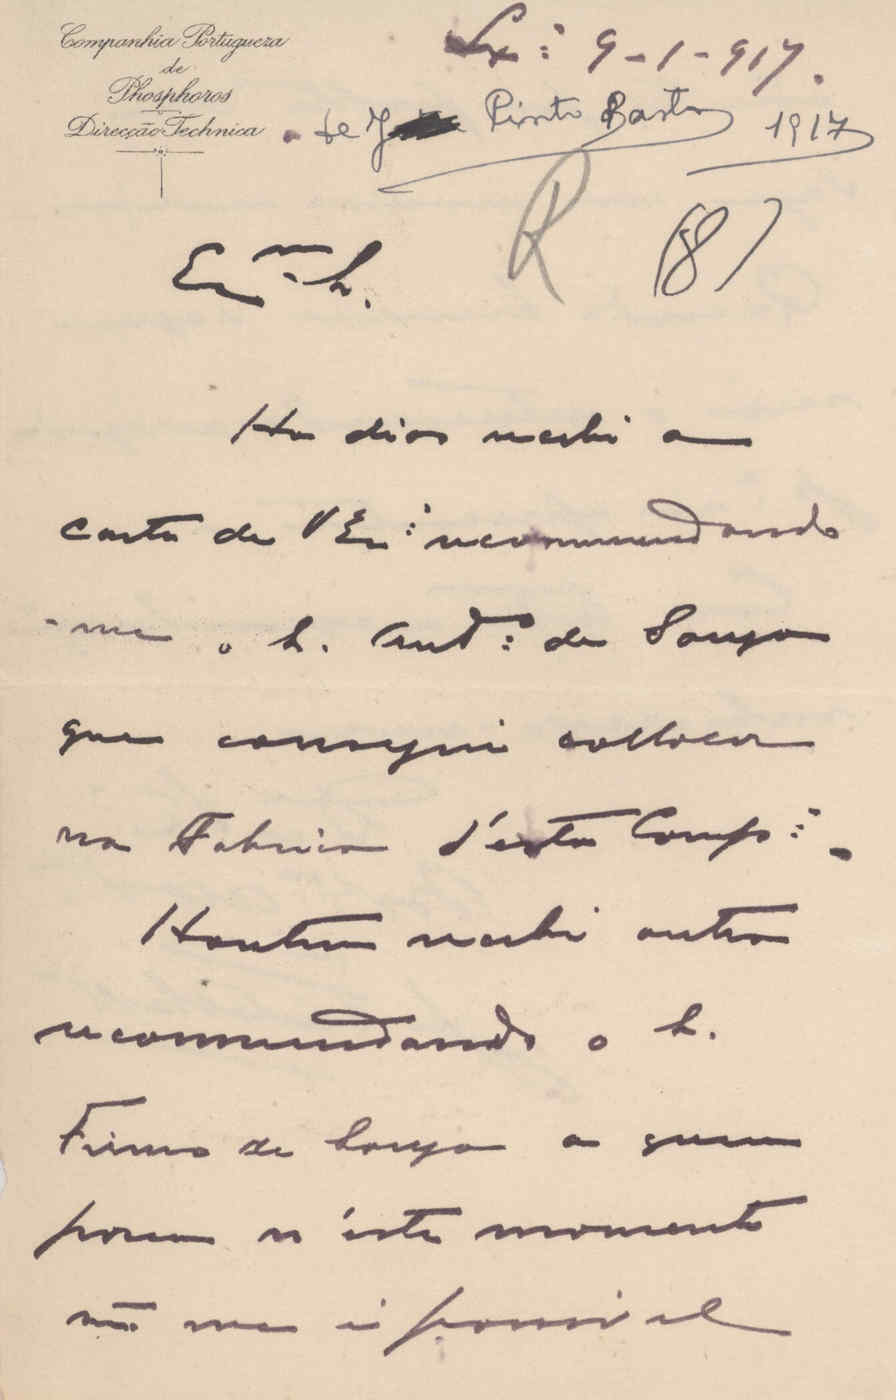 Companhia Portugueza
de
Phosphoros
Direcção Technica
Lxª 9-1-917.
de Pinto Basto 1917
R (8)
Exmº Sr.
Ha dias recebi a
carta de V Exª recommendando
-me o Sr. Antº de Souza
que consegui collocar
na Fabrica d'esta Compª.
Hontem recebi outra
recommendando o Sr.
Firmo de Souza a quem
porem n'este momento
não me é possivel